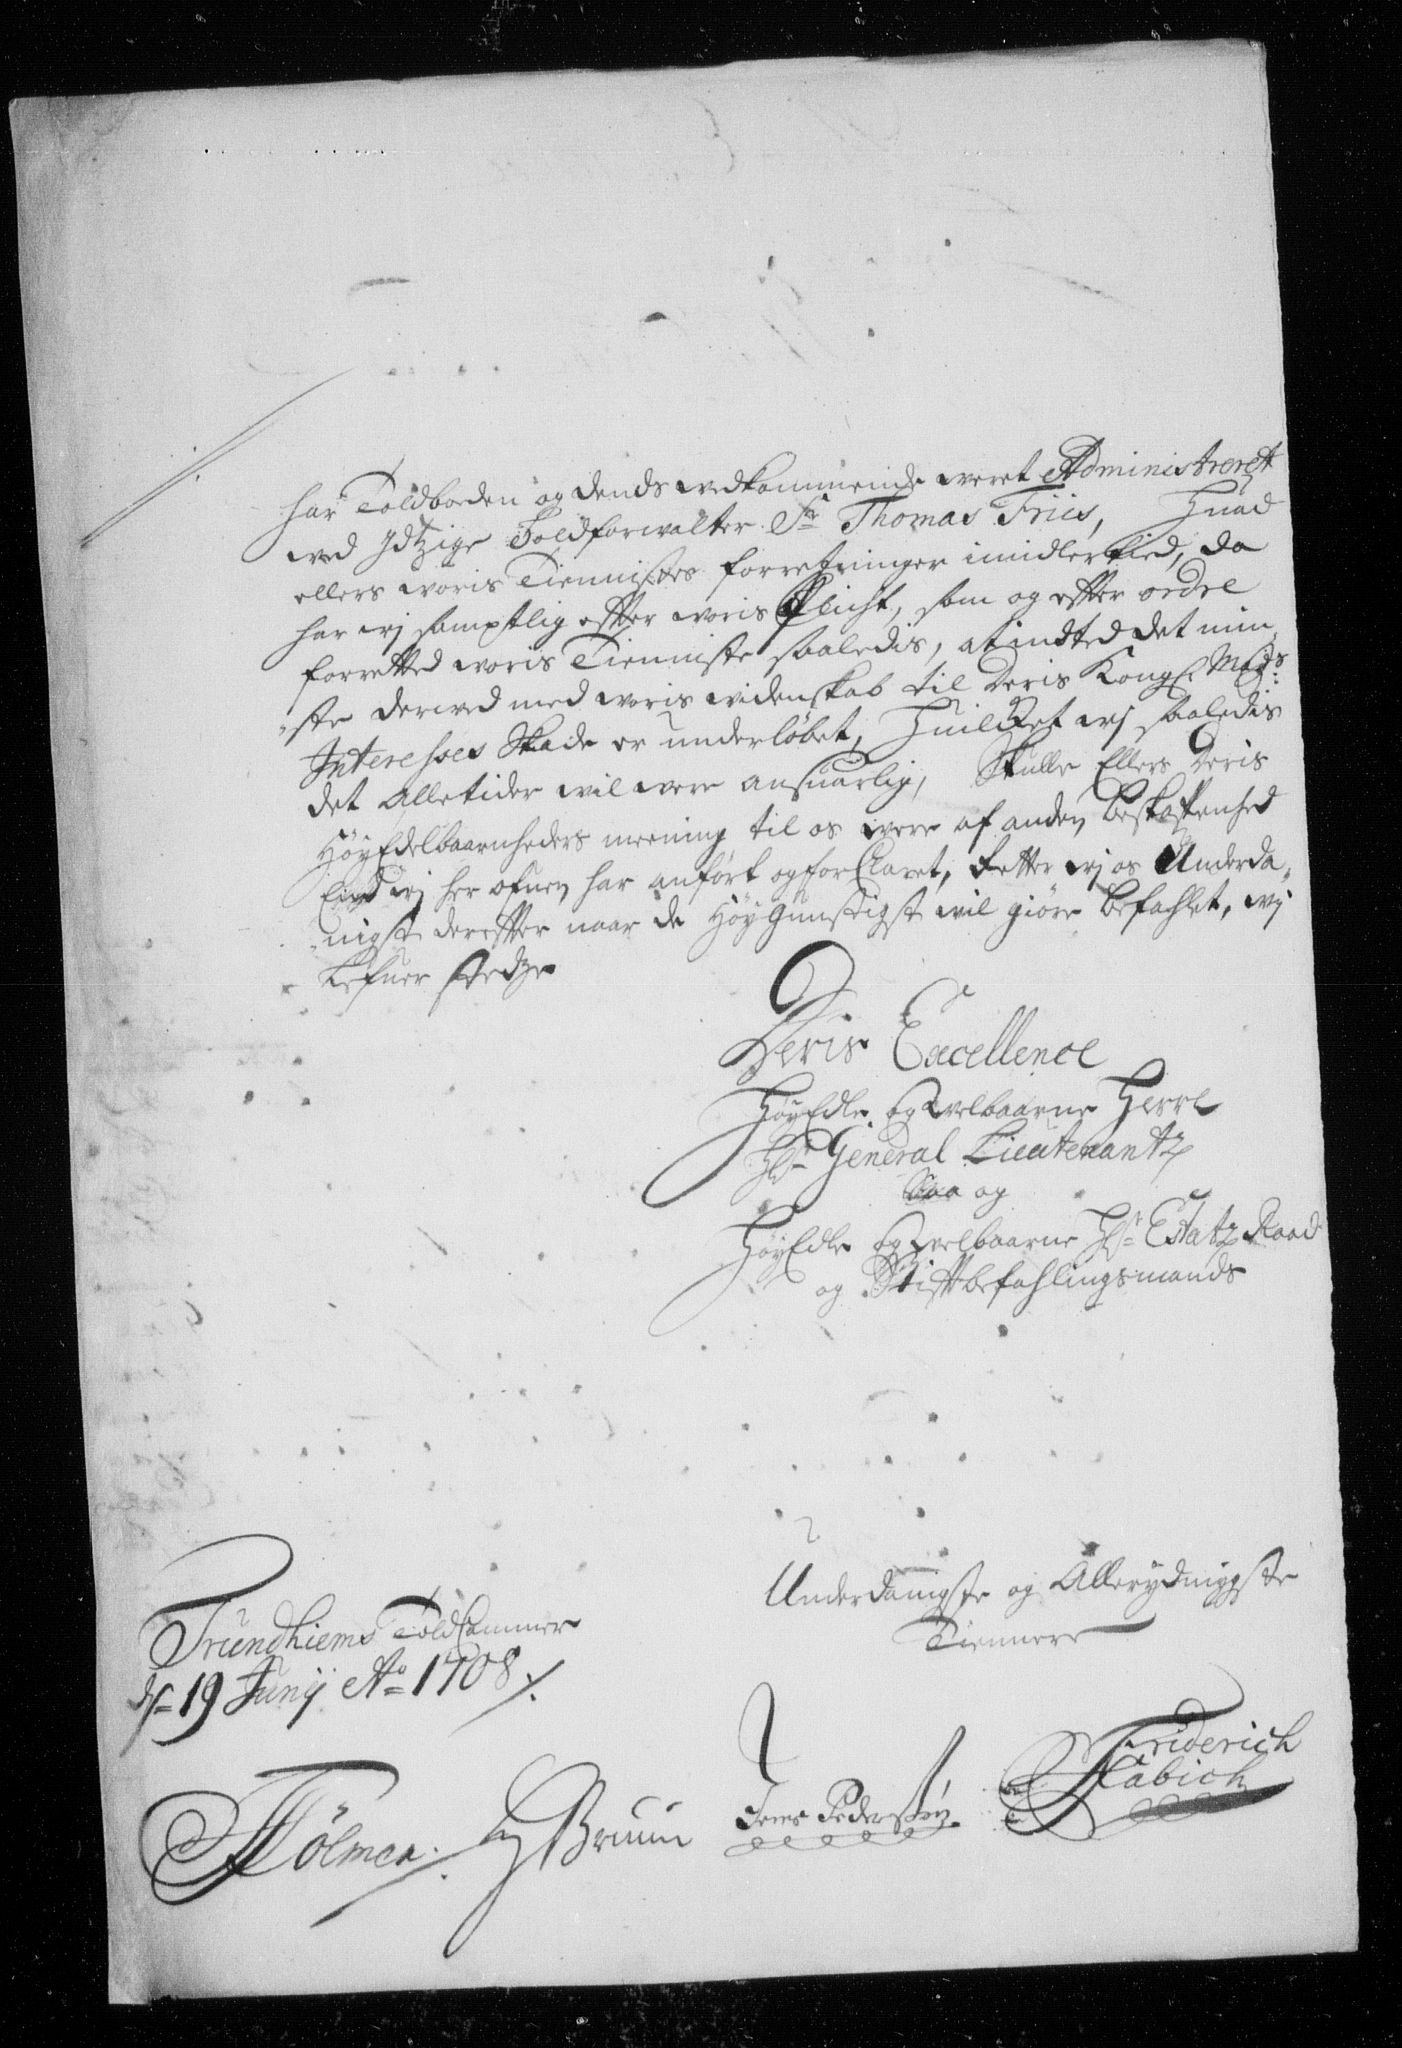 har Toldboden og dends vedkommende veret Administreret
ved Jdtzige Toldforvalter Sr Thomas Friis, Huad
ellers voris Tiennistes forretninger imidlertied, da
har vj samptlig effter voris Plicht, som og effter ordre
forretted voris Tienniste saaledis, at indted det min„
„ste derved med voris videnskab til Deris Kongl Mayts:
Interesses Skade er underløbet, Huilcket vj saaledis
det Alletider vil vere ansuarlig, Skulle Ellers Deris
HøyEdelbaarnheders meening til os vere af anden beskaffenhed
End vj her ofuen har anført og forClaret, Retter vj os Underda„
„nigst dereffter naar de Høygunstigst vil giøre befahlet, vj
lefuer stedze
Deris Excellence
HøyEdle og Velbaarne Herre
Hr General Lieutenantz
Saa og
HøyEdle og Velbaarne Hr Etatz Raad
og Stiftbefahlingsmands
Underdanigste og Allerydmygste
Tiennere
Trundhiems ToldCammer
ds 19 Junij Ao 1708 /.
Tölmer. Bruun Jens Pedersøn Friderich
Fabich